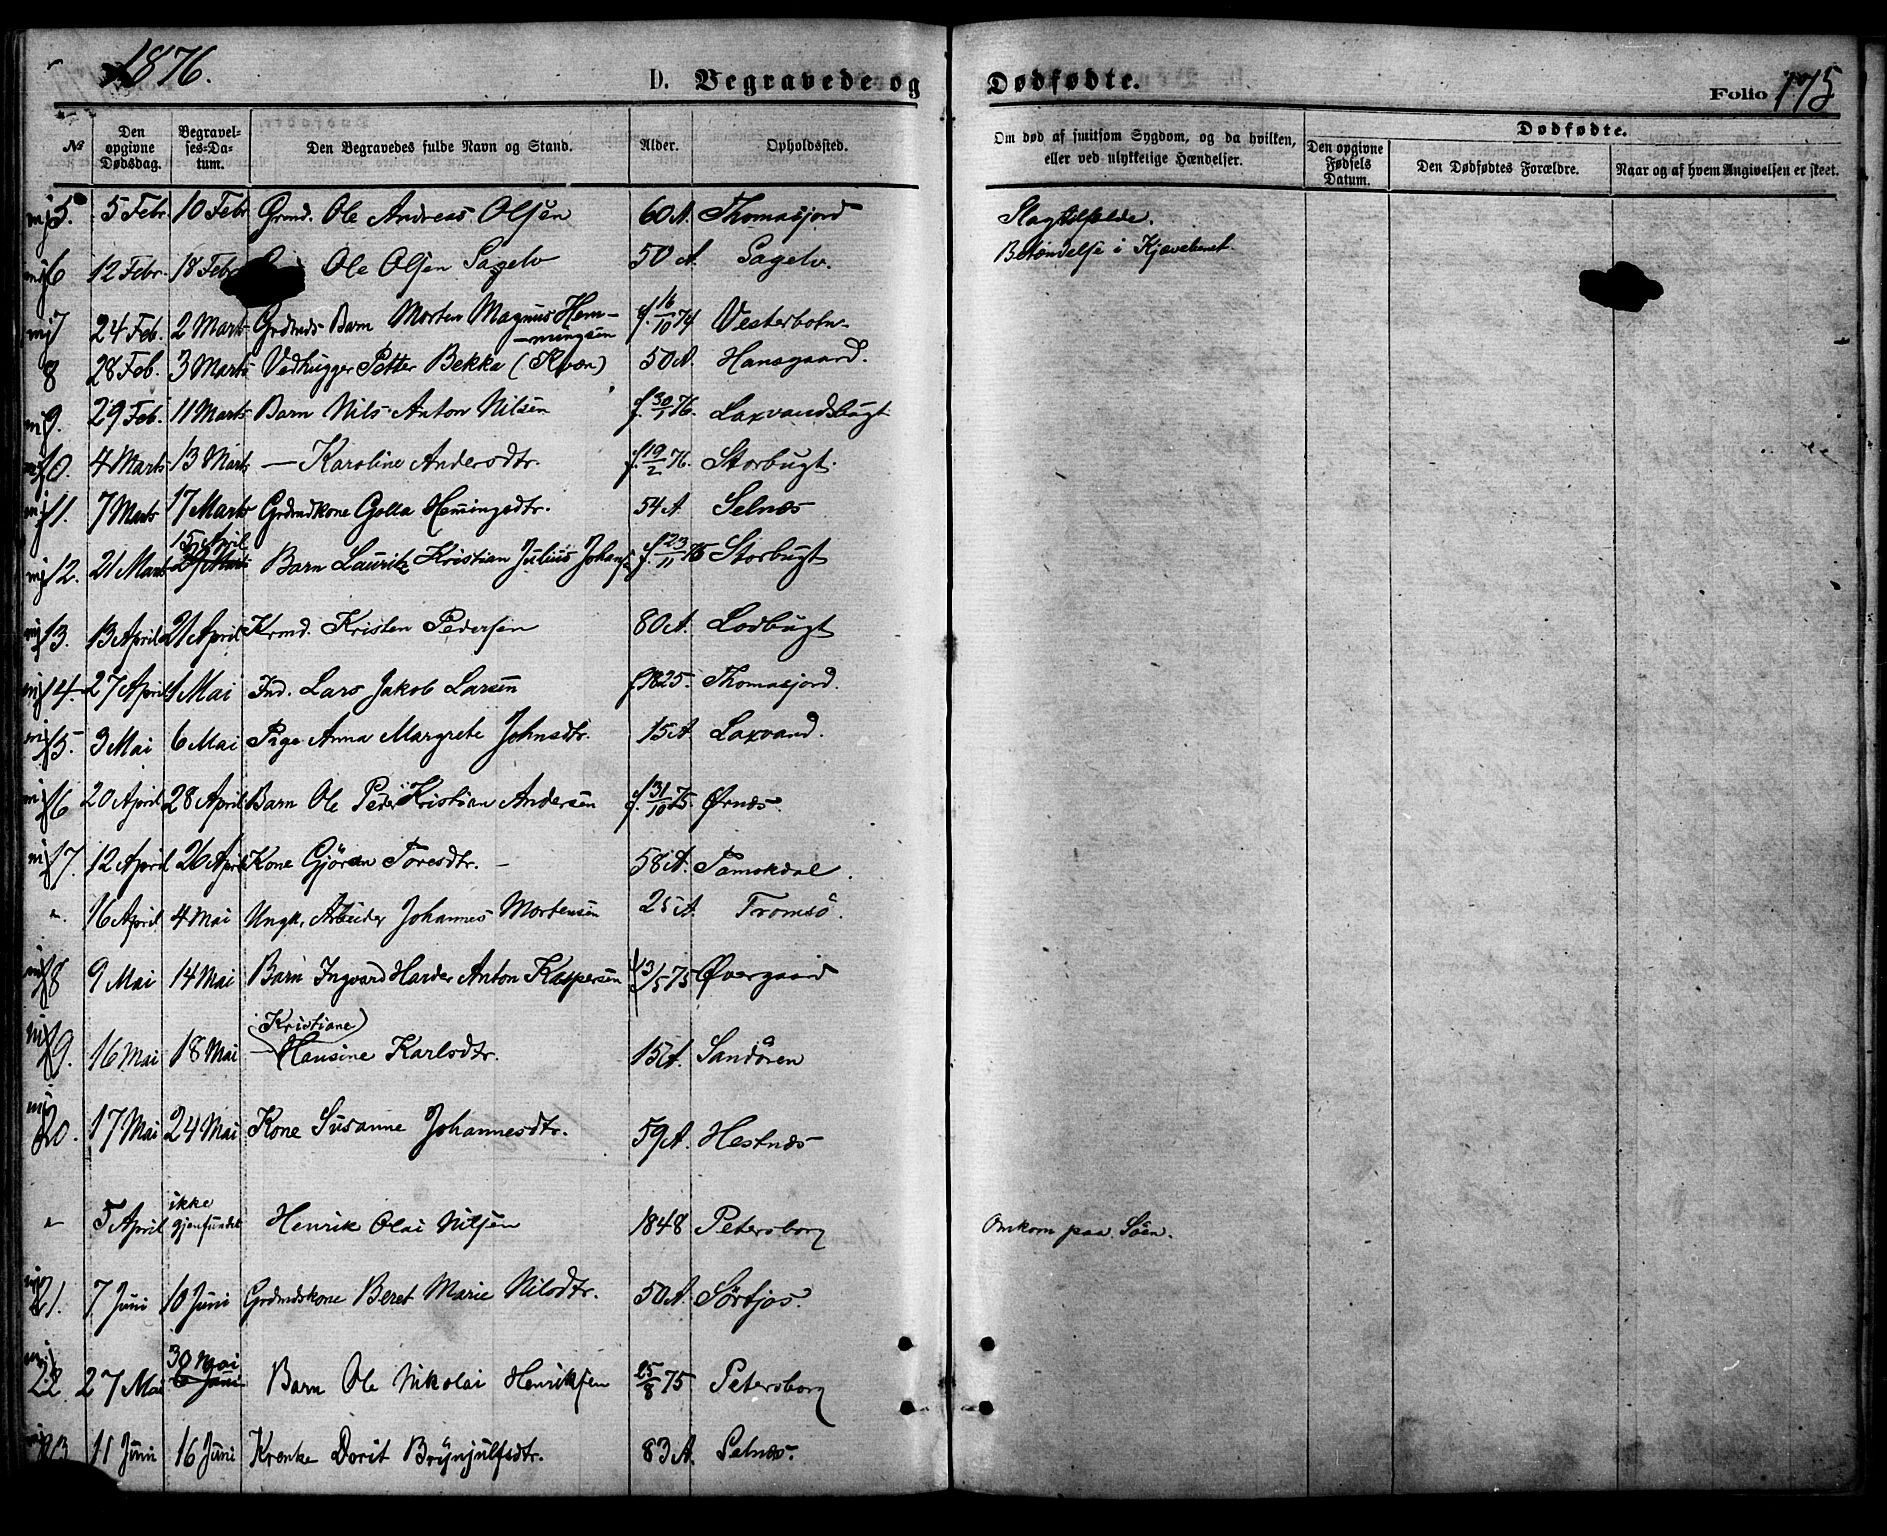 1876.
D. Begravede og Dødfødte.
Folio 175
No
Den opgivne Dødsdag.
Begravel-ses-Da-tum.
Den Begravedes fulde Navn og Stand.
Alder.
Opholdssted.
Om død af smitsom Sygdom, og da hvilken, eller ved ulykkelige Hændelser.
Dødfødte.
Den opgivne Fødsels Datum.
Den Dødfødtes Forældre.
Naar og af hvem Angivelsen er skeet.
5. 5 Febr 10 Febr Grmd. Ole Andreas Olsen 60 A. Thomasjord Slagtilfælde.
6 12 Febr. 18 Febr Ole Olsen Sagelv 50 A. Sagelv. Betændelse i Kjævebenet.
7 24 Feb. 2 Marts Grdmds Barn Morten Magnus Hem-mingsen f. 16/10 74 Vesterbotn
8 28 Feb. 3 Marts Vedhugger Petter Bekka (Kvæn) 50 A. Hansgaard.
9. 29 Feb. 11 Marts Barn Nils Anton Nilsen f. 30/1 76. Laxvandsbugt
10. 4 Marts 13 Marts — Karoline Andersdtr. f. 19/2 76. Storbugt.
11. 7 Marts 17 Marts Grdmdkone Golla Hemingsdtr. 54 A Selnæs
15 April
12. 21 Marts Barn Lauritz Kristian Julius Johans f. 23/11 75 Storbugt
13. 13 April 21 April Krmd. Kristen Pedersen 80 A. Lodbugt
14. 27 April 1 Mai Ind. Lars Jakob Larsen f. 1825. Thomasjord.
15. 3 Mai 6 Mai Pige Anna Margrete Johnsdtr. 15 A Laxvand.
16 20 April 28 April Barn Ole Peder Kristian Andersen f. 31/10 75. Ørnæs.
17. 12 April 26 April Kone Gjøran Toresdtr. — 58 A. Tamokdal.
" 16 April 4 Mai Ungk. Arbeider Johannes Mortensen 25 A Tromsö.
18 9 Mai 14 Mai Barn Ingvard Harder Anton Kaspersen f. 13/5 75 Øvergaard
(Kristiane)
19. 16 Mai 18 Mai — Hansine Karlsdtr. 15 A. Sandören
20. 17 Mai 24 Mai Kone Susanne Johannesdtr. 59 A. Hestnæs
" 5 April ikke gjenfundet Henrik Olai Nilsen 1848 Petersborg Omkom paa Söen.
21. 7 Juni 10 Juni Grdmdskone Beret Marie Nilsdtr. 50 A. Sörkjos.
30 Mai
22 27 Mai 6 Juni Barn Ole Nikolai Henriksen 25/8 75 Petersborg
23 11 Juni 16 Juni Krænke Dorit Brynjulfsdtr. 83 A. Selnæs.